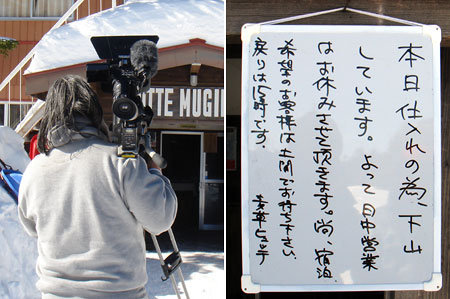 TTE MUGI
本日仕入れの為、下山
しています。よって日中営業
はお休みさせて頂きます。尚、宿泊
希望のお客様は土間でお待ち下さい。
戻りは15時です。
麦草ヒュッテ